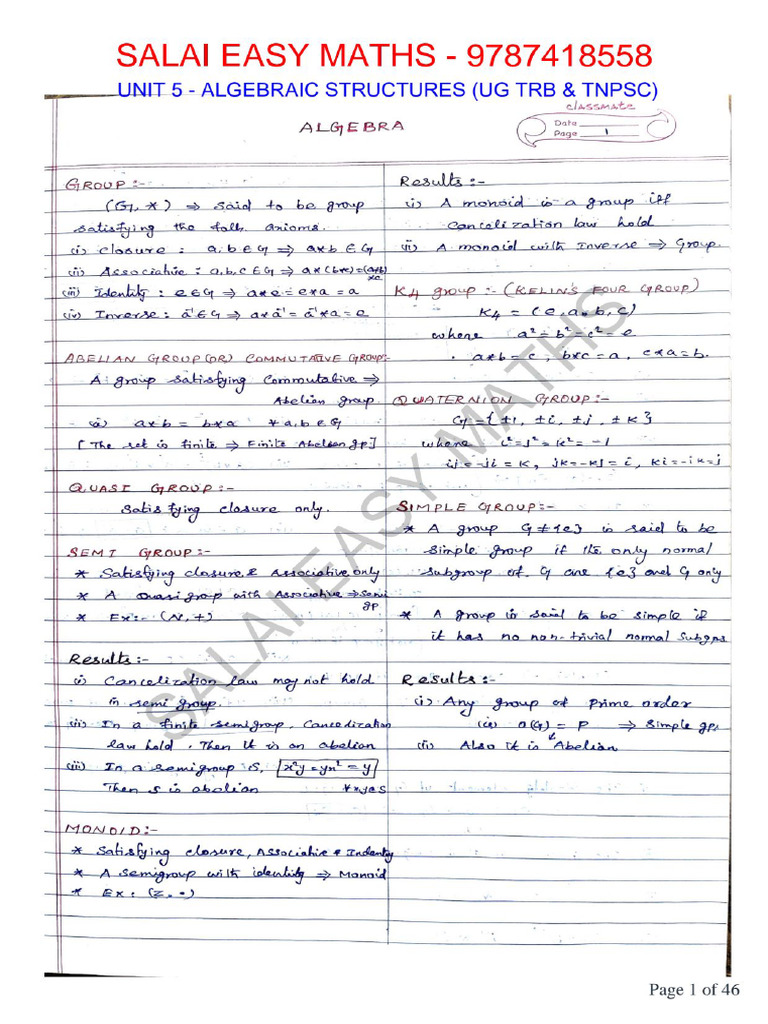 SALAI EASY MATHS - 9787418558
UNIT 5 - ALGEBRAIC STRUCTURES (UG TRB & TNPSC)
classmate
Date
Page 1
ALGEBRA
GROUP:-
(G, *) ⇒ said to be group
satisfying the foll. axioms.
(i) Closure : a,b∈G ⇒ a*b∈G
(ii) Associative : a,b,c∈G ⇒ a*(b*c)=(a*b)*c
(iii) Identity : e∈G ⇒ a*e=e*a=a
(iv) Inverse : a⁻¹∈G ⇒ a*a⁻¹=a⁻¹*a=e
ABELIAN GROUP (OR) COMMUTATIVE GROUP:-
A group satisfying Commutative ⇒
Abelian group
(i) a*b = b*a ∀ a,b∈G
[The set is finite ⇒ Finite Abelian gp]
QUASI GROUP:-
Satisfying closure only.
SEMI GROUP:-
* Satisfying closure & Associative only
* A Quasi group with Associative ⇒ semi gp
* Ex:- (N,+)
Results:-
(i) Cancelization law may not hold
in semi group.
(ii) In a finite semigroup, Cancelization
law hold. Then It is an abelian
(iii) In a semigroup S, x²y=yx²=y
Then S is abelian ∀x,y∈S
MONOID:-
* Satisfying closure, Associative & Indentity
* A semigroup with identity ⇒ Monoid
* Ex: (Z, •)
Results:-
(i) A monoid is a group iff
Cancelization law hold
(ii) A monoid with Inverse ⇒ Group.
K4 group :- (KELIN'S FOUR GROUP)
K4 = (e,a,b,c)
where a²=b²=c²=e
a*b=c, b*c=a, c*a=b.
QUATERNION GROUP:-
G={±1, ±i, ±j, ±k}
where i²=j²=k²=-1
ij=-ji=k, jk=-kj=i, ki=-ik=j
SIMPLE GROUP:-
* A group G≠{e} is said to be
simple group if the only normal
subgroup of G are {e} and G only
* A group is said to be simple if
it has no non-trivial normal Subgps
Results:-
(i) Any group of prime order
(ie) o(G)=P ⇒ Simple gp.
(ii) Also it is Abelian
SALAI EASY MATHS
Page 1 of 46